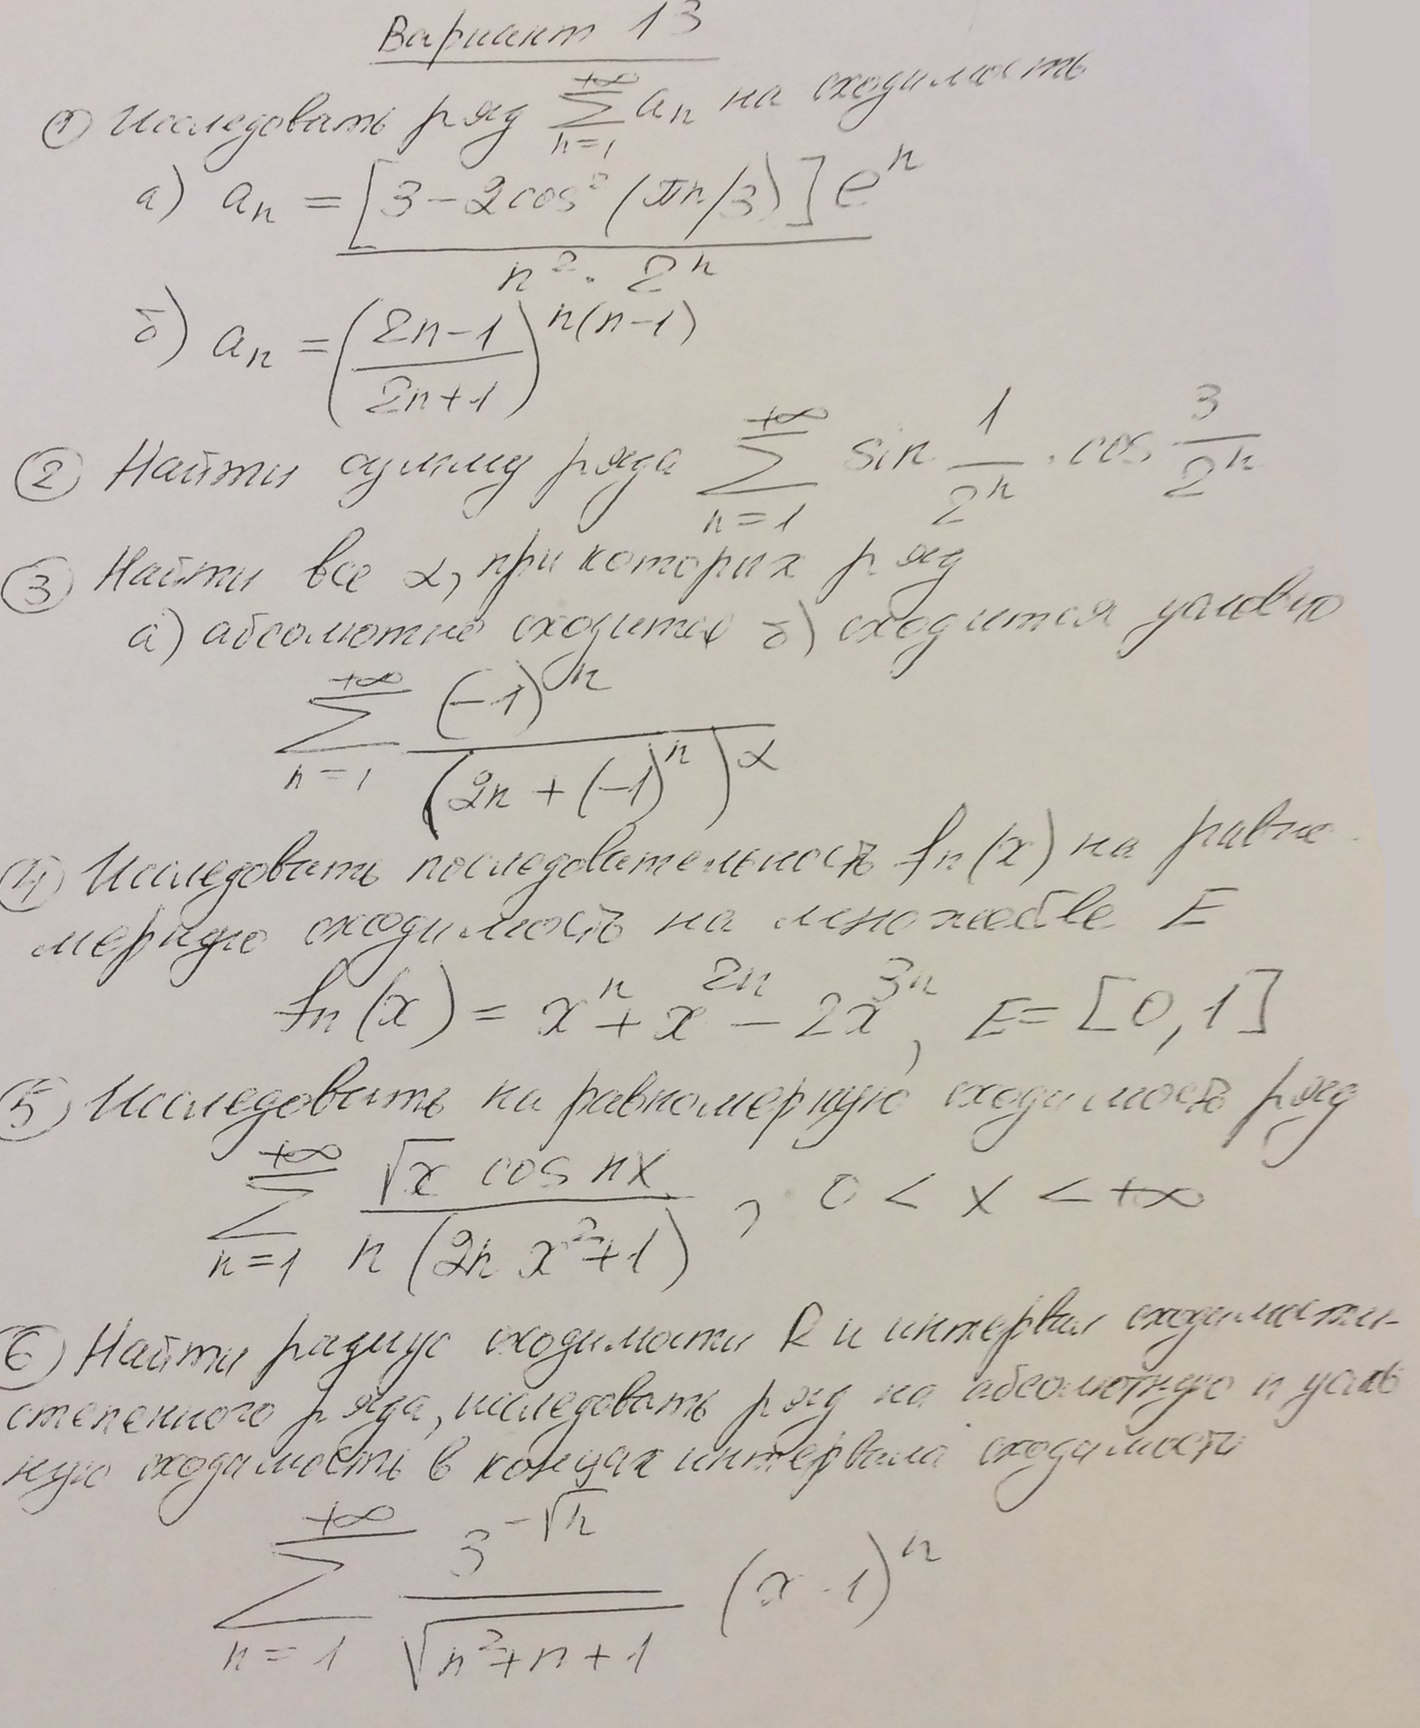 Вариант 13
① Исследовать ряд \sum_{n=1}^{+\infty} a_n на сходимость
а) a_n = \frac{[3-2\cos^2(\pi n/3)]e^n}{n^2 \cdot 2^n}
б) a_n = \left(\frac{2n-1}{2n+1}\right)^{n(n-1)}
② Найти сумму ряда \sum_{n=1}^{+\infty} \sin\frac{1}{2^n} \cdot \cos\frac{3}{2^n}
③ Найти все α, при которых ряд
а) абсолютно сходится б) сходится условно
\sum_{n=1}^{+\infty} \frac{(-1)^n}{(2n+(-1)^n)^α}
④ Исследовать последовательность f_n(x) на равно-
мерную сходимость на множестве E
f_n(x) = x^n + x^{2n} - 2x^{3n}, E = [0,1]
⑤ Исследовать на равномерную сходимость ряд
\sum_{n=1}^{+\infty} \frac{\sqrt{x} \cos nx}{n(2n x^2+1)}, 0 < x < +\infty
⑥ Найти радиус сходимости R и интервал сходимости
степенного ряда, исследовать ряд на абсолютную и услов
ную сходимость в концах интервала сходимости
\sum_{n=1}^{+\infty} \frac{3^{-\sqrt{n}}}{\sqrt{n^2+n+1}} (x-1)^n